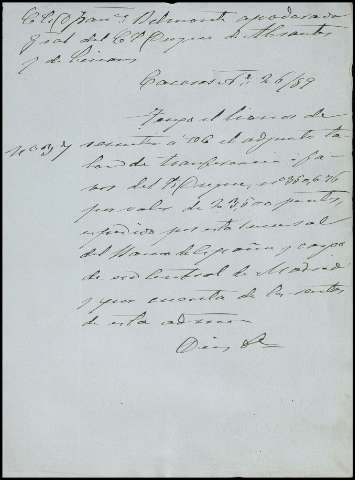 Fran.co Belmonte apoderado
gral del E. S. Duque de Abrantes
y de Linares
Caceres 26/89
Tengo el honor de
Nº 37 remitir á el adjunto ta
lon de transferencia á fa
vor del Sr Duque, nº
por valor de pesetas,
expedido por esta sucursal
del Banco de España y cargo
de la Central de Madrid
y por cuenta de las rentas
de esta admon
Dios &